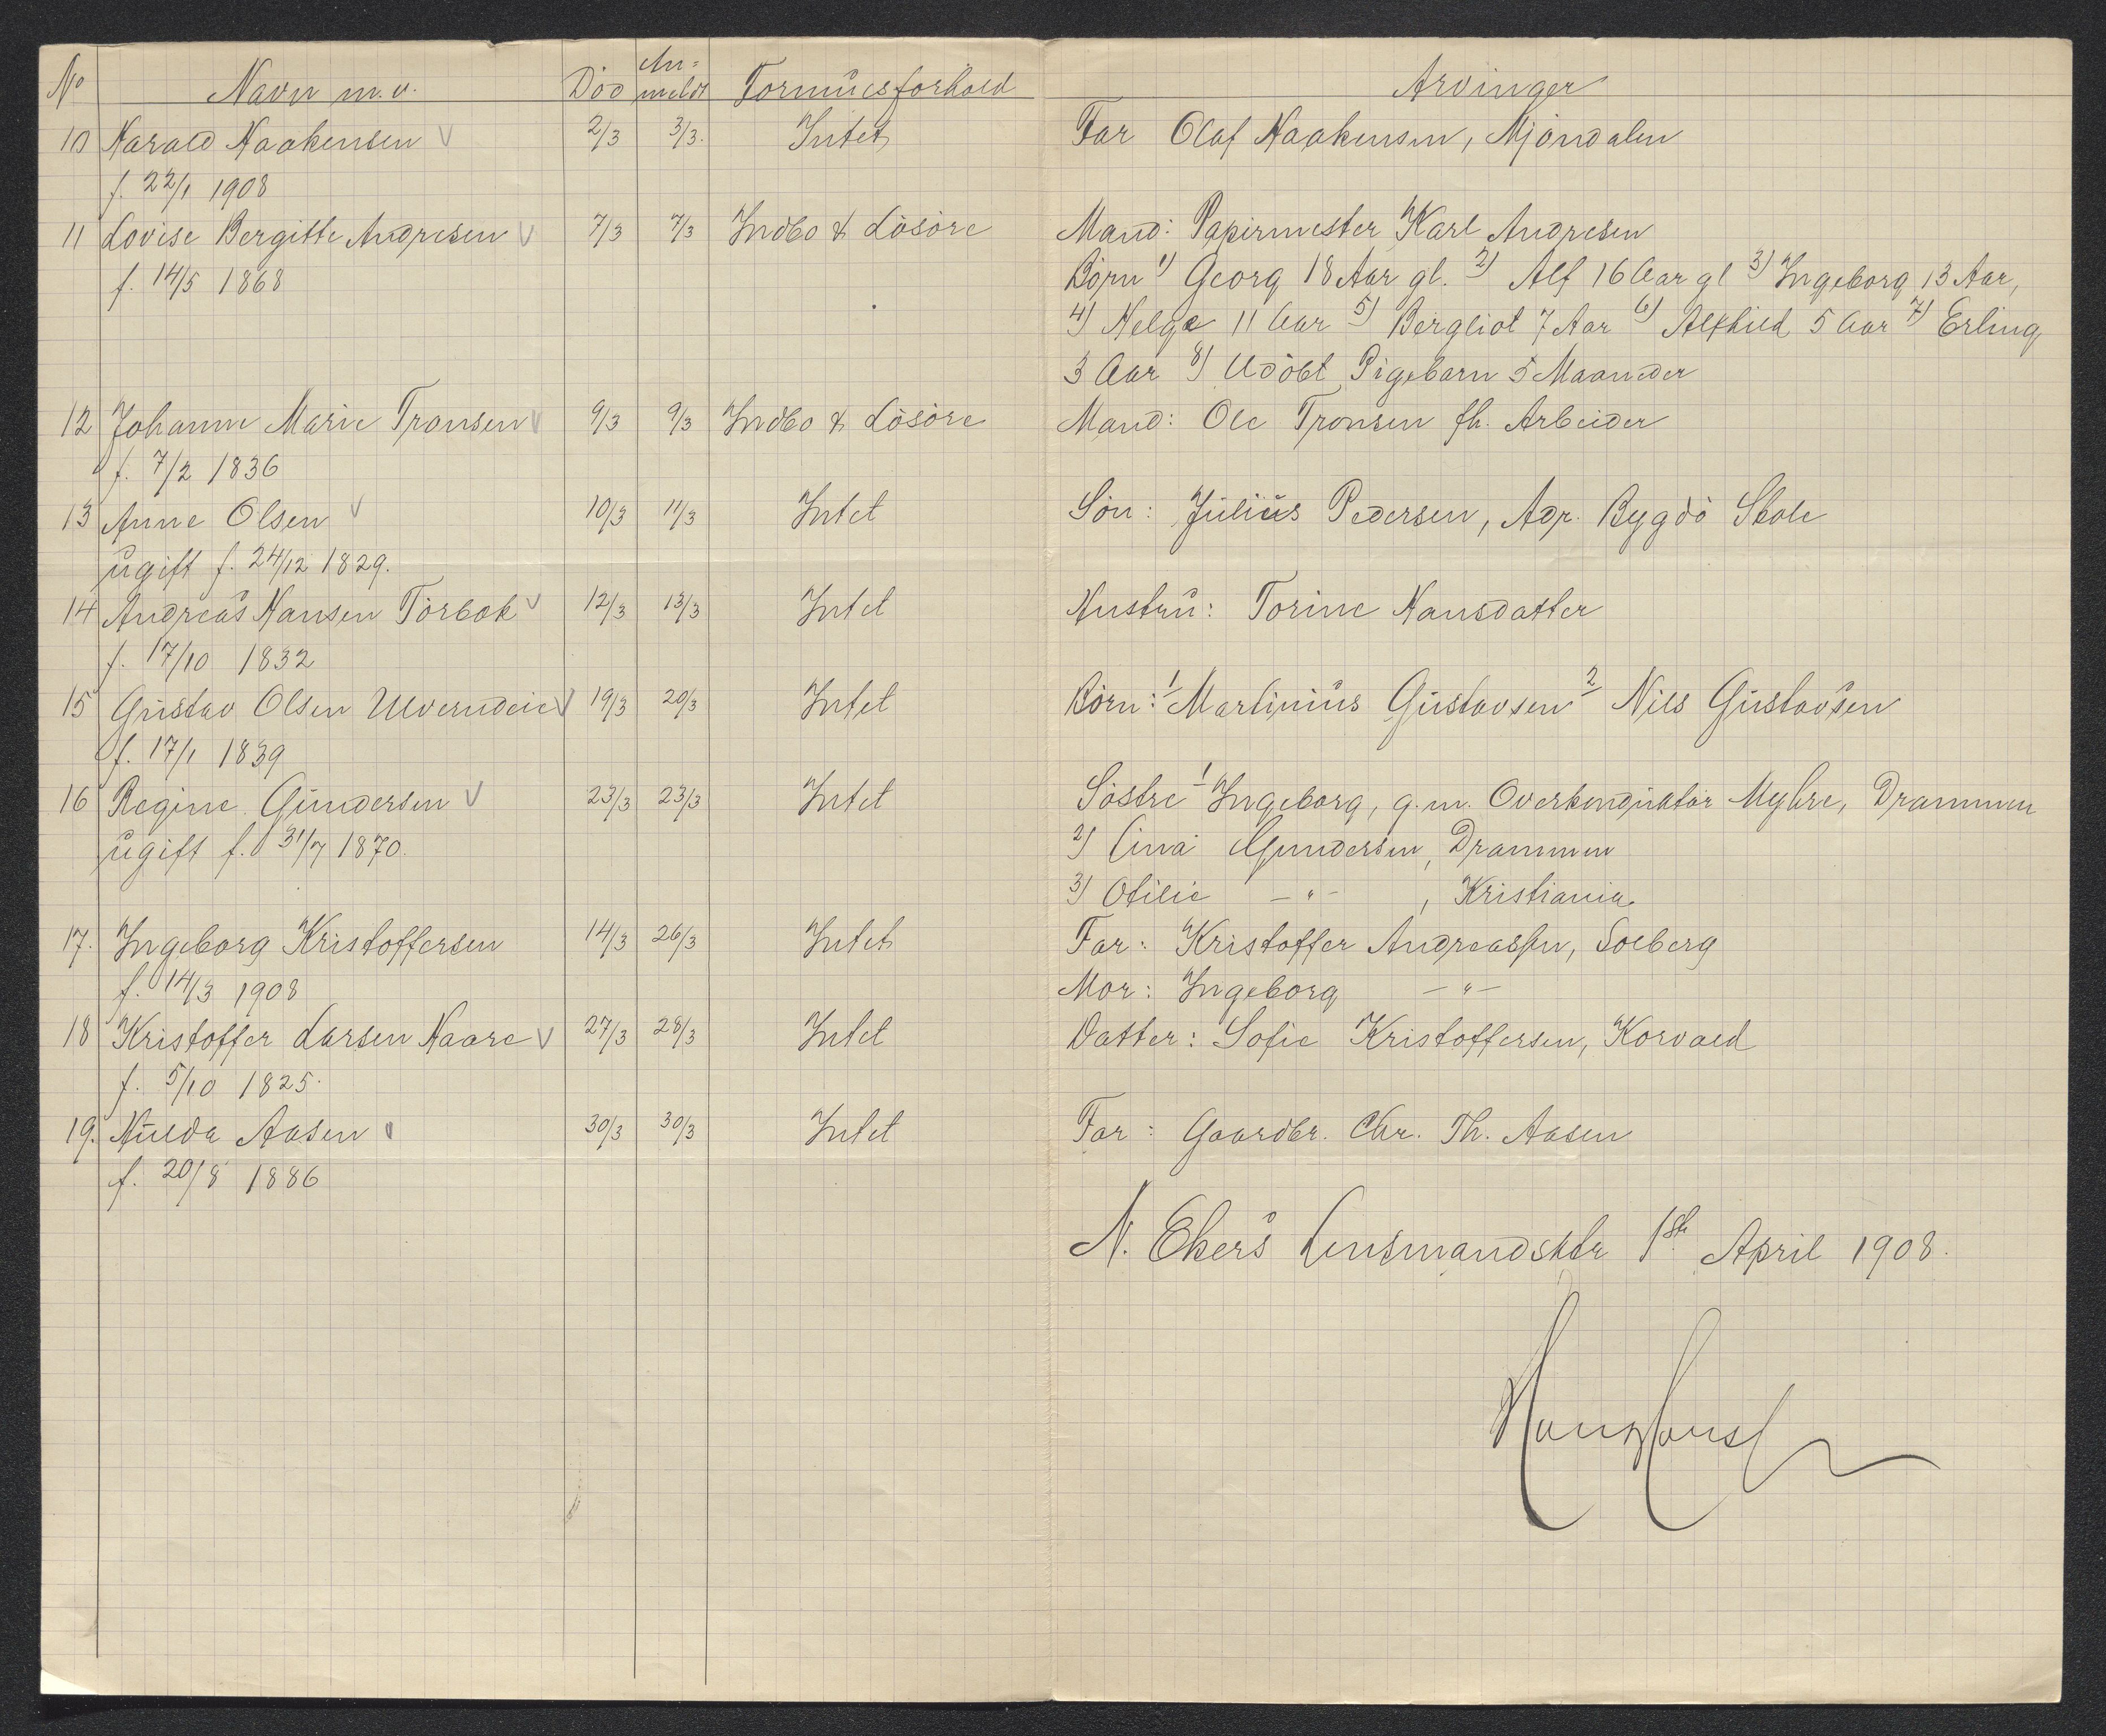 No Navn m.v. Død An=meldt Formuesforhold Arvinger
10 Harald Haakensen V 2/3 3/3. Intet Far Olaf Haakensen, Mjöndalen
f. 22/1 1908
11 Lovise Bergitte Andresen V 7/3 7/3 Indbo & Lösöre Mand: Papirmester Karl Andresen
f. 14/5 1868 Börn 1) Georg 18 Aar gl. 2) Alf 16 Aar gl 3) Ingeborg 13 Aar,
4) Helga 11 Aar 5) Bergliot 7 Aar 6) Alfhild 5 Aar 7) Erling
3 Aar 8) Udöbt Pigebarn 5 Maaneder
12 Johanne Marie Tronsen V 9/3 9/3 Indbo & Lösöre Mand: Ole Tronsen fh. Arbeider
f. 7/2 1836
13 Anne Olsen V 10/3 11/3 Intet Sön: Julius Pedersen, Adr. Bygdö Skole
ugift f. 24/12 1829.
14 Andreas Hansen Törbok V 12/3 13/3 Intet Hustru: Torine Hansdatter
f. 17/10 1832
15 Gustav Olsen Ulverudeie V 19/3 20/3 Intet Börn: 1 Martinius Gustavsen 2 Nils Gustavsen
f. 17/1 1839
16 Regine Gundersen V 23/3 23/3 Intet Söstre 1 Ingeborg, g.m. Overkonduktör Myhre, Drammen
ugift f. 31/7 1870. 2) Lina Gundersen, Drammen
3) Otilie —"— , Kristiania
17. Ingeborg Kristoffersen 14/3 26/3 Intet Far: Kristoffer Andreassen, Solberg
f. 14/3 1908 Mor: Ingeborg —"—
18 Kristoffer Larsen Haare V 27/3 28/3 Intet Datter: Sofie Kristoffersen, Korvald
f. 5/10 1825.
19. Hulda Aasen V 30/3 30/3 Intet Far: Gaardbr. Chr. Th. Aasen
f. 20/8 1886
N. Ekers Lensmandsktr 1ste April 1908.